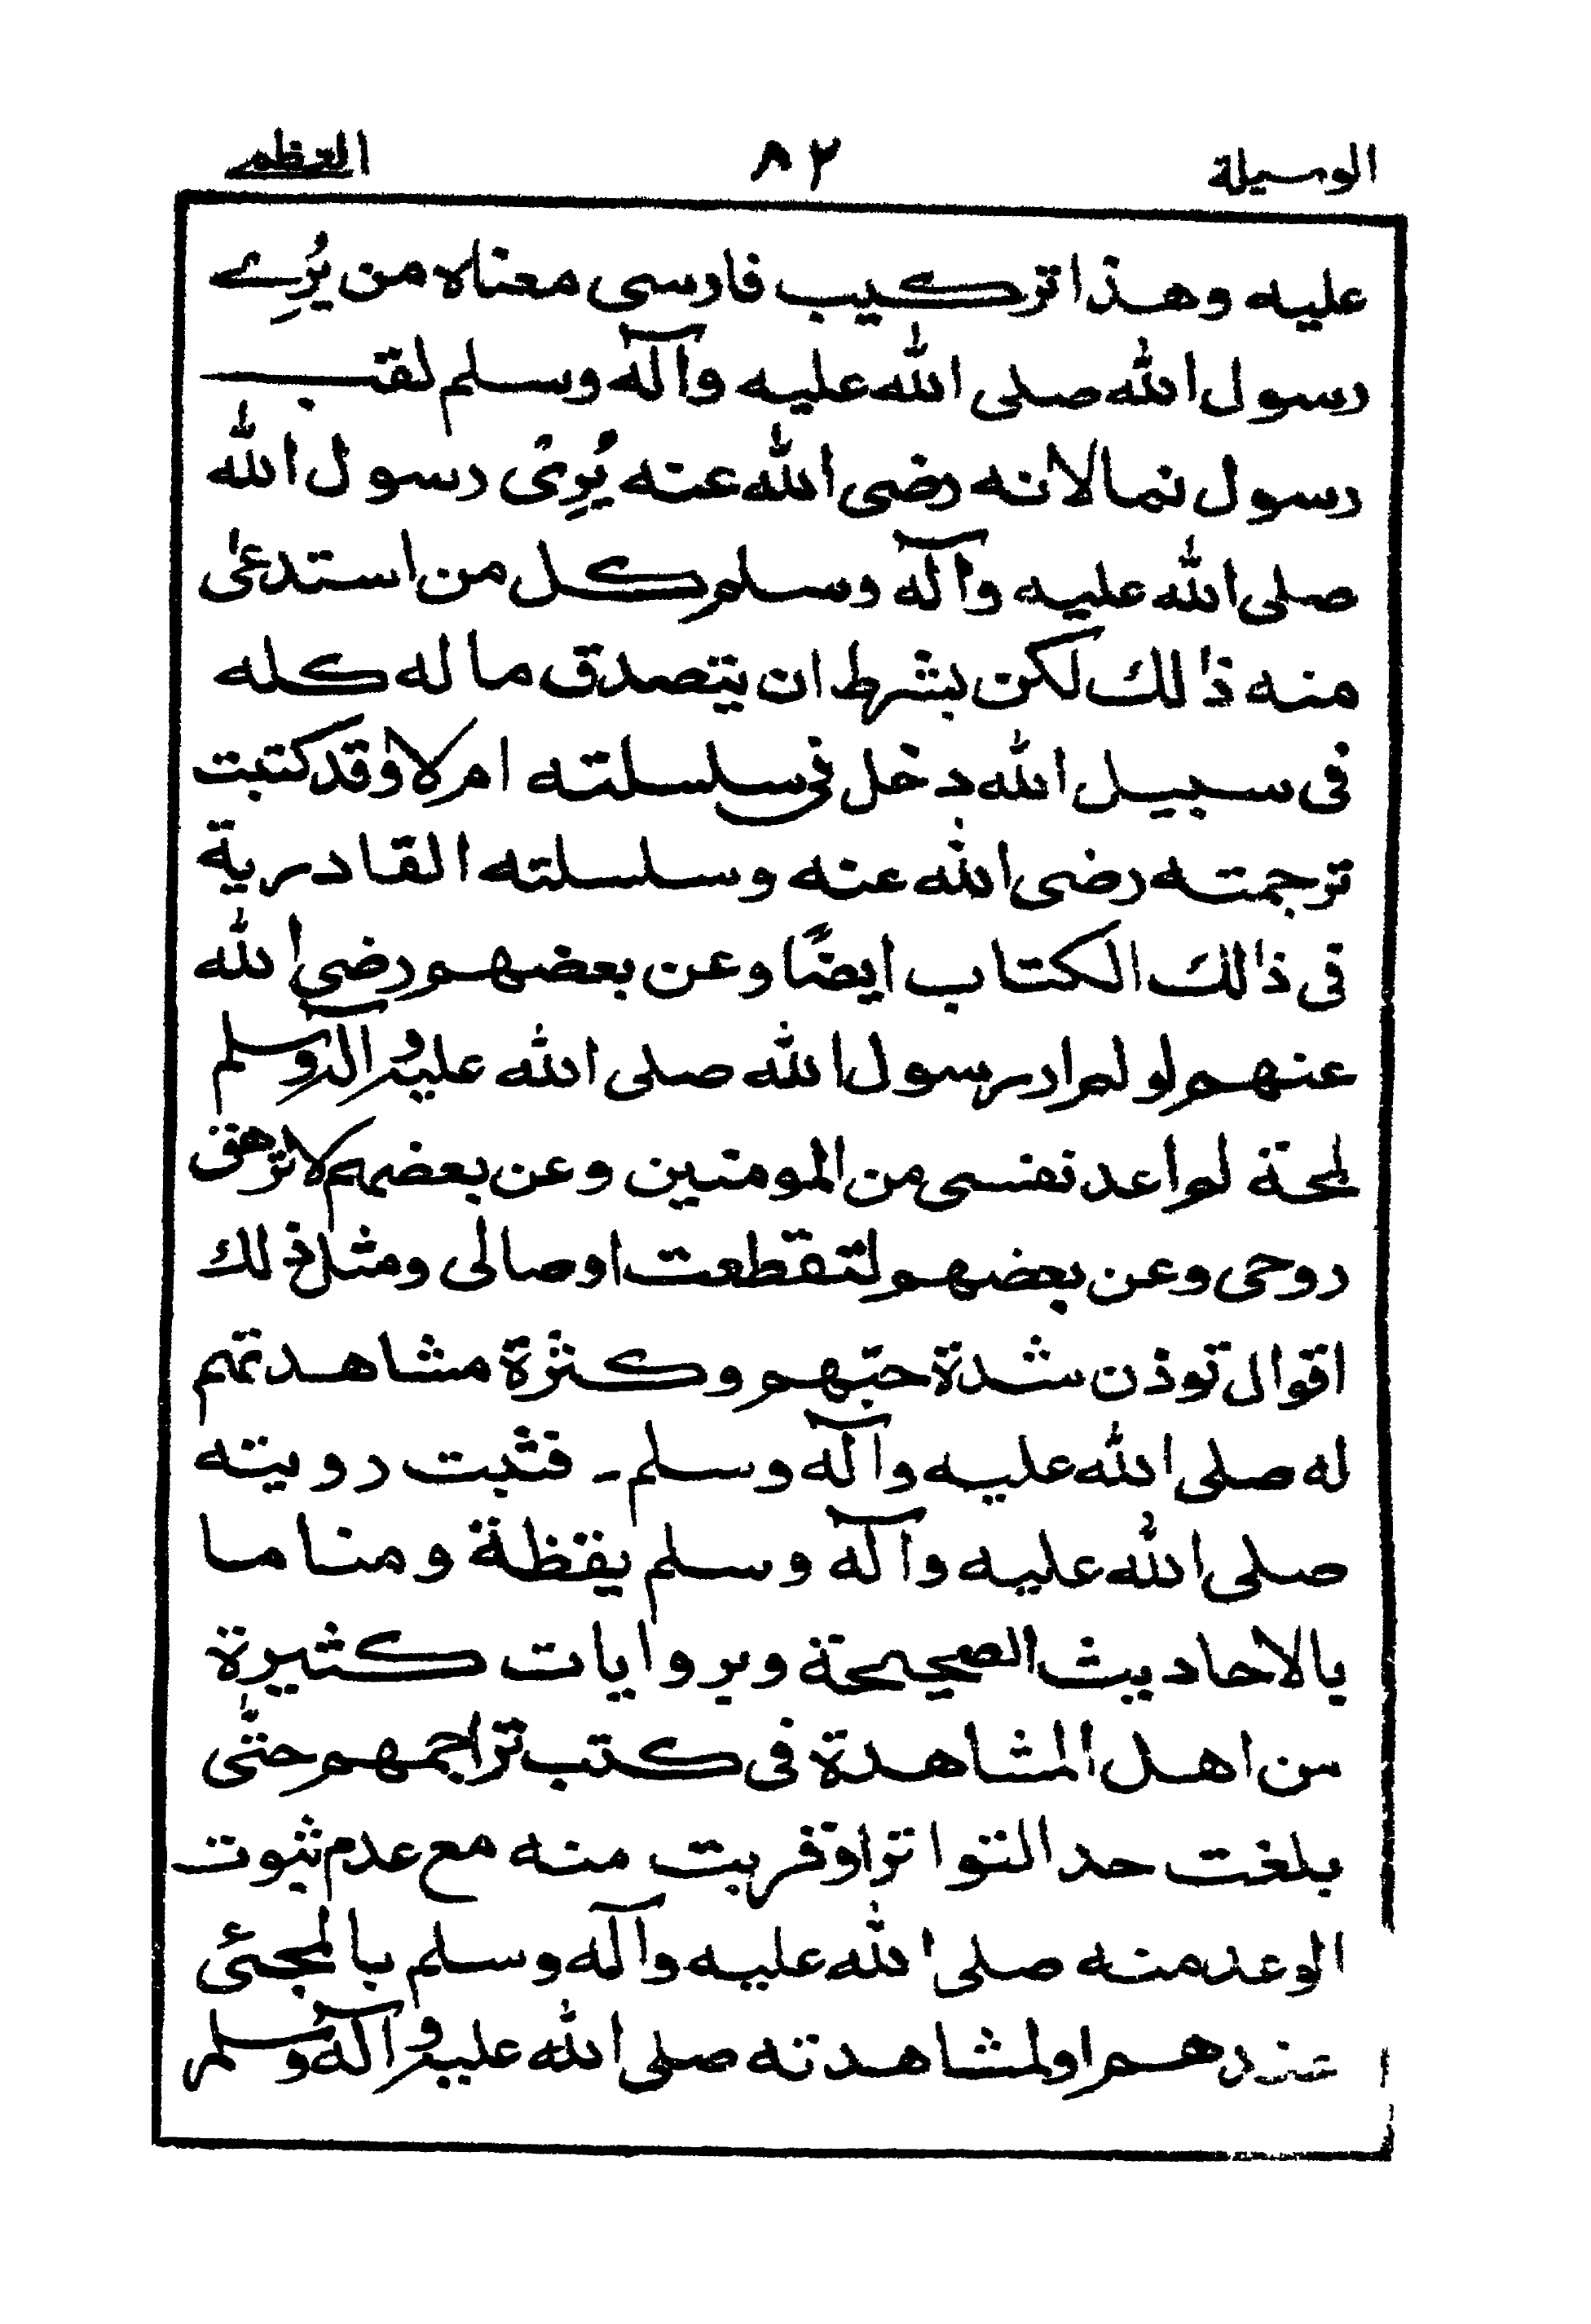 الوسيلة ٨٢ العظمى
عليه وهذا تركيب فارسى معناه من يُرِے
رسول الله صلى الله عليه وآله وسلم لقب
رسول نما لانه رضى الله عنه يُرِىْ رسول الله
صلى الله عليه وآله وسلم كل من استدعىٰ
منه ذالك لكن بشرط ان يتصدق ماله كله
فى سبيل الله دخل فى سلسلته ام لا وقد كتبت
ترجمته رضى الله عنه وسلسلته القادرية
فى ذالك الكتاب ايضًا وعن بعضهم رضى الله
عنهم لو لم ار رسول الله صلى الله عليه وآله وسلم
لمحة لم اعد نفسى من المومنين وعن بعضهم لا تزهق
روحى وعن بعضهم لتقطعت اوصالى ومثل ذلك
اقوال توذن شدة حبّهم وكثرة مشاهدتهم
له صلى الله عليه وآله وسلم۔ فثبت رويته
صلى الله عليه وآله وسلم يقظة ومناما
بالاحاديث الصحيحة وبروايات كثيرة
من اهل المشاهدة فى كتب تراجمهم حتّٰى
بلغت حد التواتر او قربت منه مع عدم ثبوت
الوعد منه صلى الله عليه وآله وسلم بالمجئ
عندهم او لمشاهدته صلى الله عليه وآله وسلم